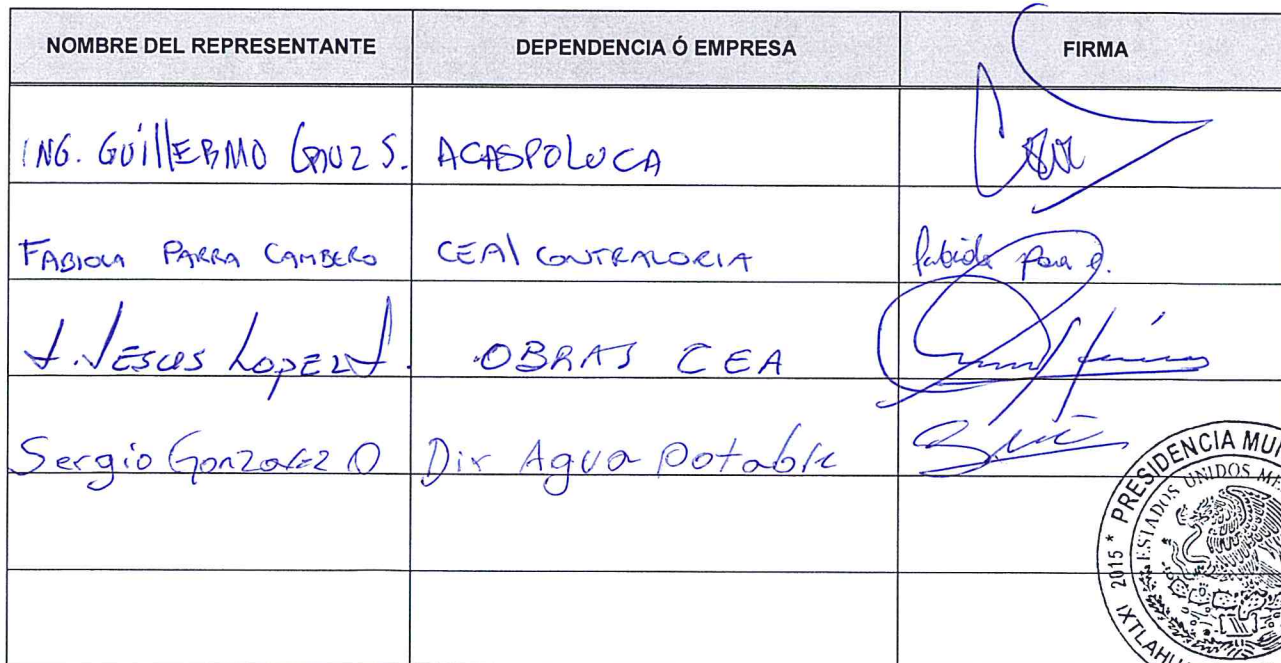 NOMBRE DEL REPRESENTANTE DEPENDENCIA Ó EMPRESA FIRMA
ING. GUILLERMO CRUZ S. ACASPOLUCA
FABIOLA PARRA CAMBERO CEA/ CONTRALORIA
J. JESUS LOPEZ OBRAS CEA
Sergio Gonzalez O Dir Agua Potable
PRESIDENCIA MUN
ESTADOS UNIDOS ME
2015 *
IXTLAHU